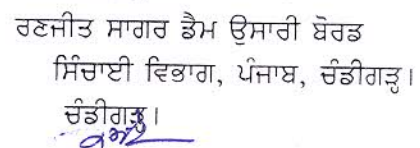 ਰਣਜੀਤ ਸਾਗਰ ਡੈਮ ਉਸਾਰੀ ਬੋਰਡ
ਸਿੰਚਾਈ ਵਿਭਾਗ, ਪੰਜਾਬ, ਚੰਡੀਗੜ੍ਹ।
ਚੰਡੀਗੜ੍ਹ।